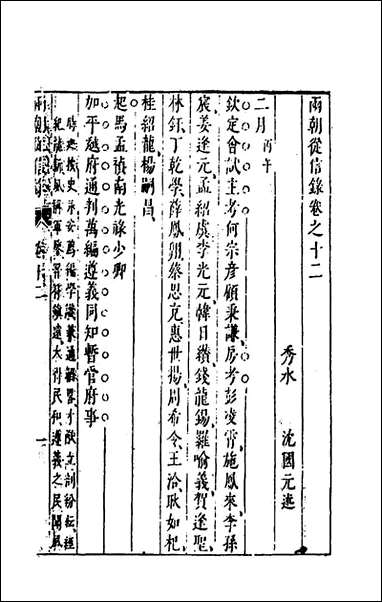 兩朝從信錄卷之十二
秀水 沈國元述
二月丙午
欽定會試主考何宗彥顧秉謙房考彭凌霄施鳳來李孫
宸姜逢元孟紹虞李光元韓日纘錢龍錫羅喻義賀逢聖
林釬丁乾學薛鳳翔蔡思充惠世揚周希令王洽耿如杞
桂紹龍楊嗣昌
起馬孟禎南光祿少卿
加平越府通判萬編遵義同知暫管府事
時
史永安萬編學識兼通
才猷立剖紛紜經
符鎮遠大得民和遵義之民聞風
卷十二
一